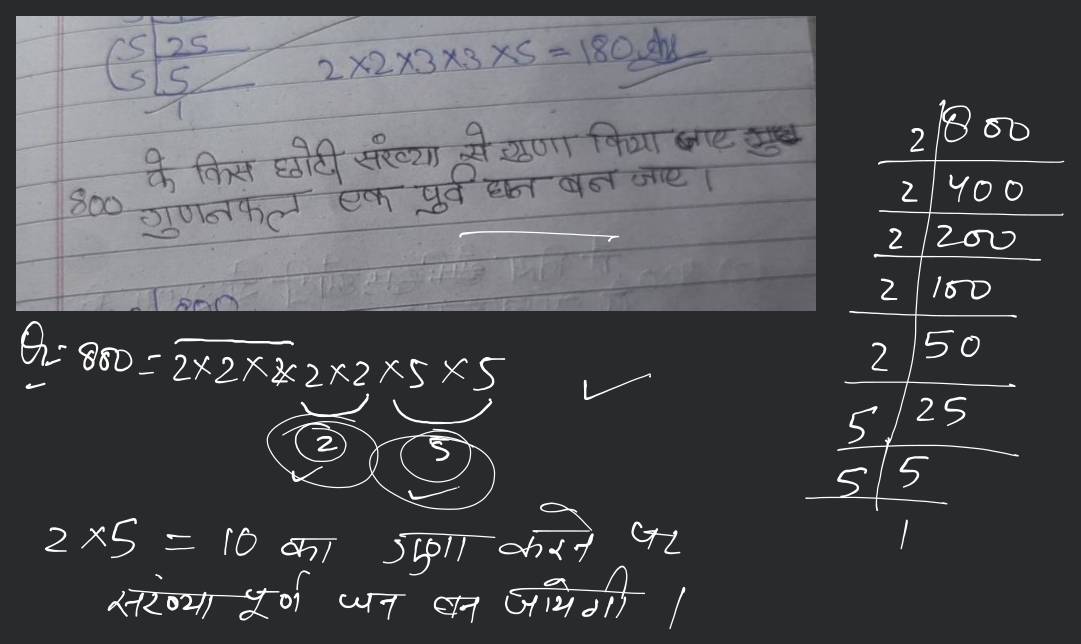 5 | 25
5 | 5
1
2×2×3×3×5 = 180 Ans
800 के किस छोटी संख्या से गुणा किया जाए
गुणनफल एक पुर्व घन बन जाए।
800 = 2×2×2×2×2×5×5
2 5
2×5 = 10 का गुणा करने पर
संख्या पूर्ण घन बन जायेगी।
2 | 800
2 | 400
2 | 200
2 | 100
2 | 50
5 | 25
5 | 5
1